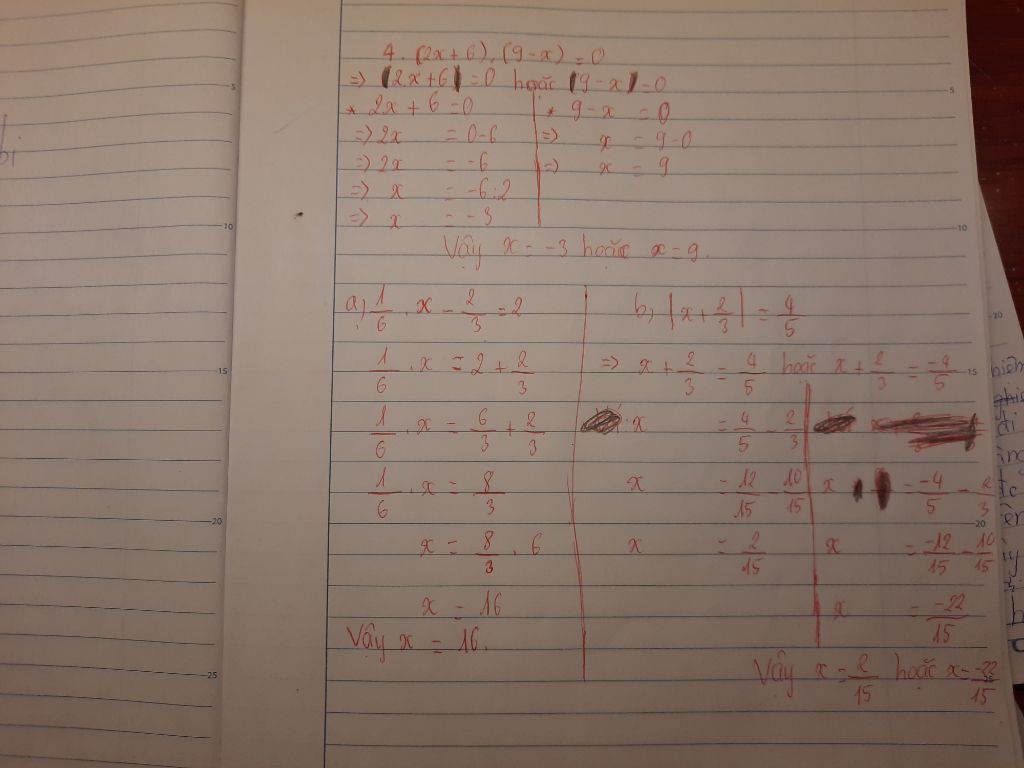 4. (2x+6).(9-x)=0
=> (2x+6)=0 hoặc (9-x)=0
* 2x+6=0
=> 2x = 0-6
=> 2x = -6
=> x = -6:2
=> x = -3
* 9-x = 0
=> x = 9-0
=> x = 9
Vậy x = -3 hoặc x = 9.
a) 1/6 . x - 2/3 = 2
1/6 . x = 2 + 2/3
1/6 . x = 6/3 + 2/3
1/6 . x = 8/3
x = 8/3 . 6
x = 16
Vậy x = 16.
b) |x + 2/3| = 4/5
=> x + 2/3 = 4/5 hoặc x + 2/3 = -4/5
x = 4/5 - 2/3
x = 12/15 - 10/15
x = 2/15
x = -4/5 - 2/3
x = -12/15 - 10/15
x = -22/15
Vậy x = 2/15 hoặc x = -22/15